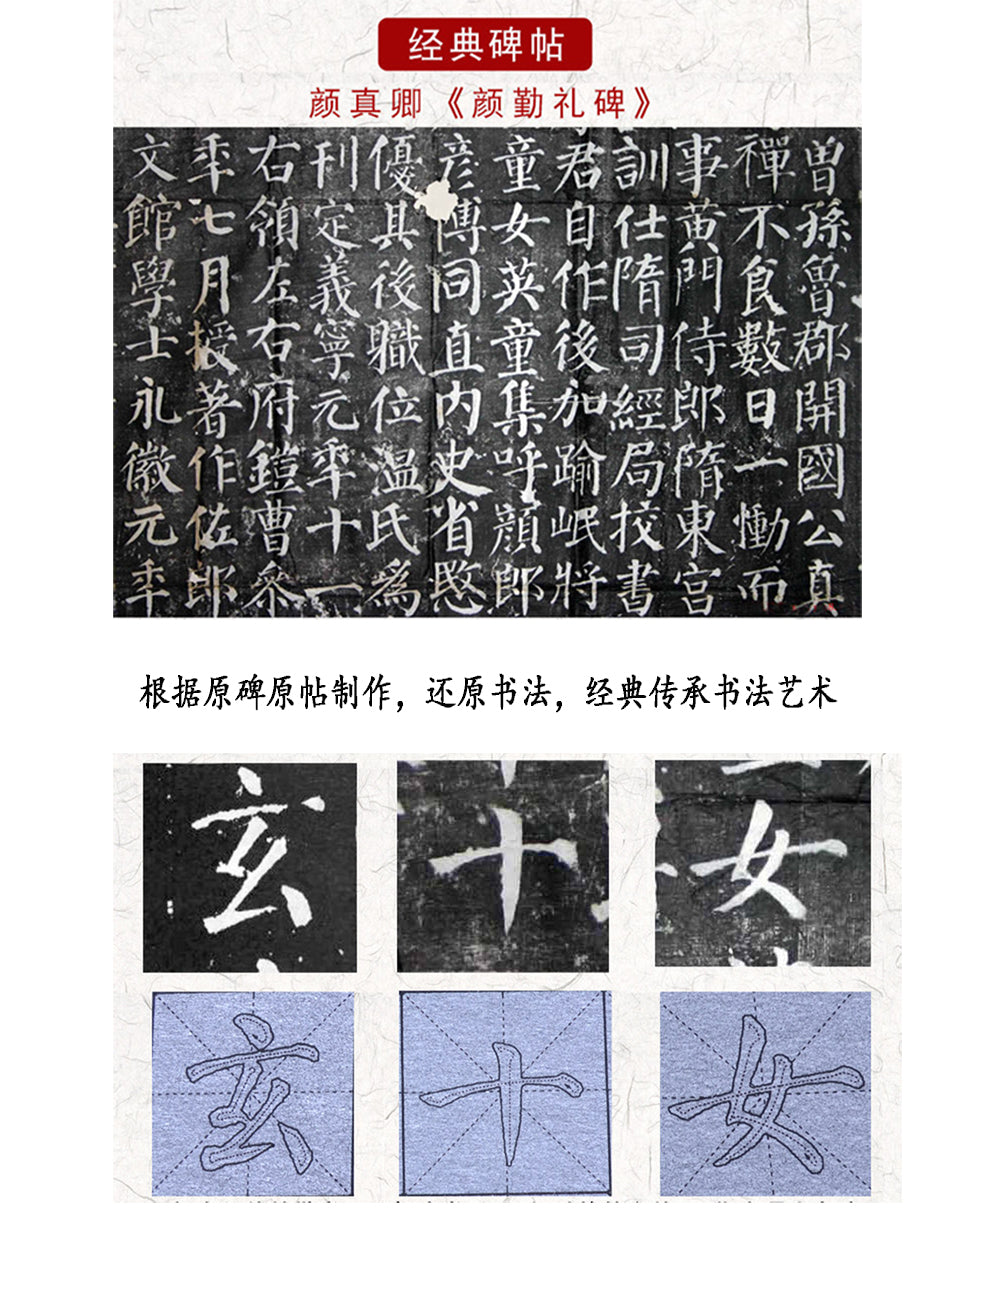 经典碑帖
颜真卿《颜勤礼碑》
曽孫魯郡開國公真
禪不食數日一慟而
事黄門侍郎隋東宫
訓仕隋司經局挍書
君自作後加踰岷將
童女英童集呼顔郎
彦博同直内史省愍
優其後職位温氏為
刊定義寧元年十一
右領左右府鎧曹叅
年七月授著作佐郎
文館學士永徽元年
根据原碑原帖制作，还原书法，经典传承书法艺术
玄 十 女
玄 十 女